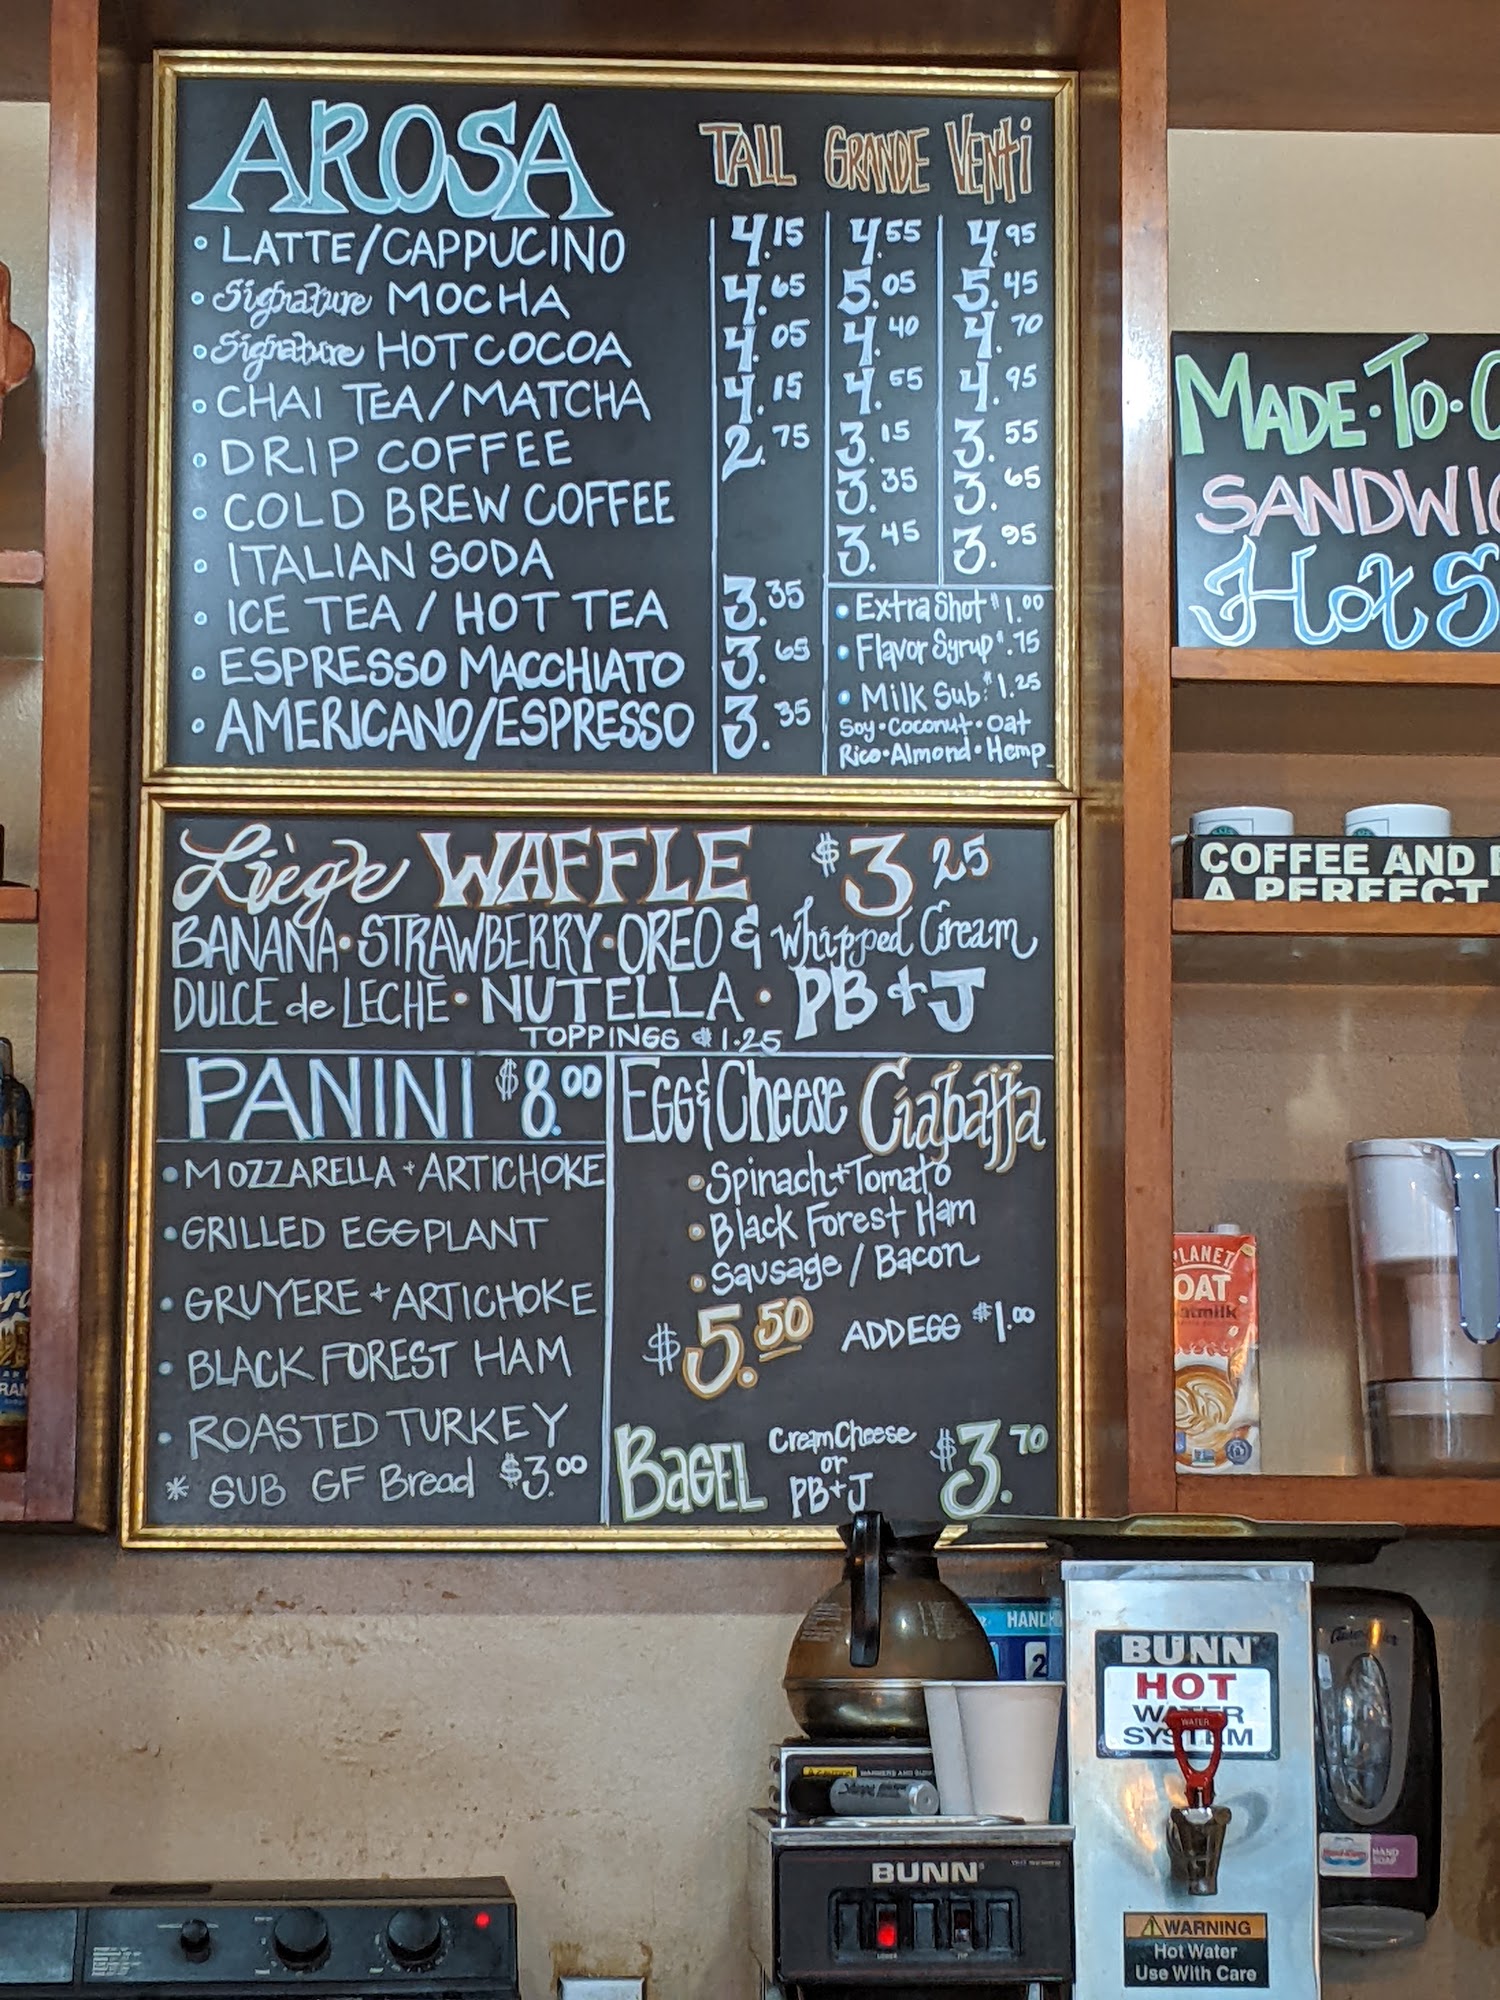 AROSA TALL GRANDE VENTI
• LATTE/CAPPUCINO 4.15 4.55 4.95
• Signature MOCHA 4.65 5.05 5.45
• Signature HOT COCOA 4.05 4.40 4.70
• CHAI TEA/MATCHA 4.15 4.55 4.95
• DRIP COFFEE 2.75 3.15 3.55
• COLD BREW COFFEE 3.35 3.65
• ITALIAN SODA 3.45 3.95
• ICE TEA / HOT TEA 3.35
• ESPRESSO MACCHIATO 3.65
• AMERICANO/ESPRESSO 3.35
• Extra Shot $1.00
• Flavor Syrup $.75
• Milk Sub: $1.25
Soy • Coconut • Oat
Rice • Almond • Hemp
Liège WAFFLE $3.25
BANANA • STRAWBERRY • OREO & Whipped Cream
DULCE de LECHE • NUTELLA • PB + J
TOPPINGS $1.25
PANINI $8.00
• MOZZARELLA + ARTICHOKE
• GRILLED EGGPLANT
• GRUYERE + ARTICHOKE
• BLACK FOREST HAM
• ROASTED TURKEY
* SUB GF Bread $3.00
Egg & Cheese Ciabatta
• Spinach + Tomato
• Black Forest Ham
• Sausage / Bacon
$5.50 ADD EGG $1.00
BAGEL Cream Cheese or PB+J $3.70
MADE • TO •
SANDWIC
Hot S
COFFEE AND
A PERFECT
PLANET
OAT
BUNN
HOT
WATER
SYSTEM
WATER
HAND
2
CAUTION
BUNN
WARNING
Hot Water
Use With Care
HAND
SOAP